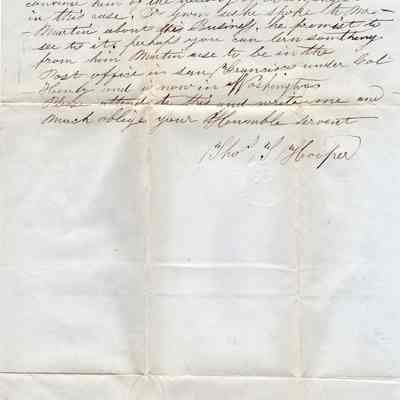 convince him of the
in this case. Dr Gwin sais he spoke to Mr
Martin about this Business. he promist to
see to it, perhaps you can lern somthing
from him Martin use to be in the
Post office in san Francisco under Col
Henly and is now in Washington
attend to this and write me and
much oblige your Humble servent
Thos. S. Hooper